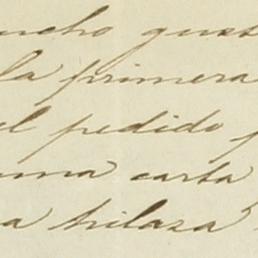 mucho gust
la primera
el pedido p
una carta
a hilaza